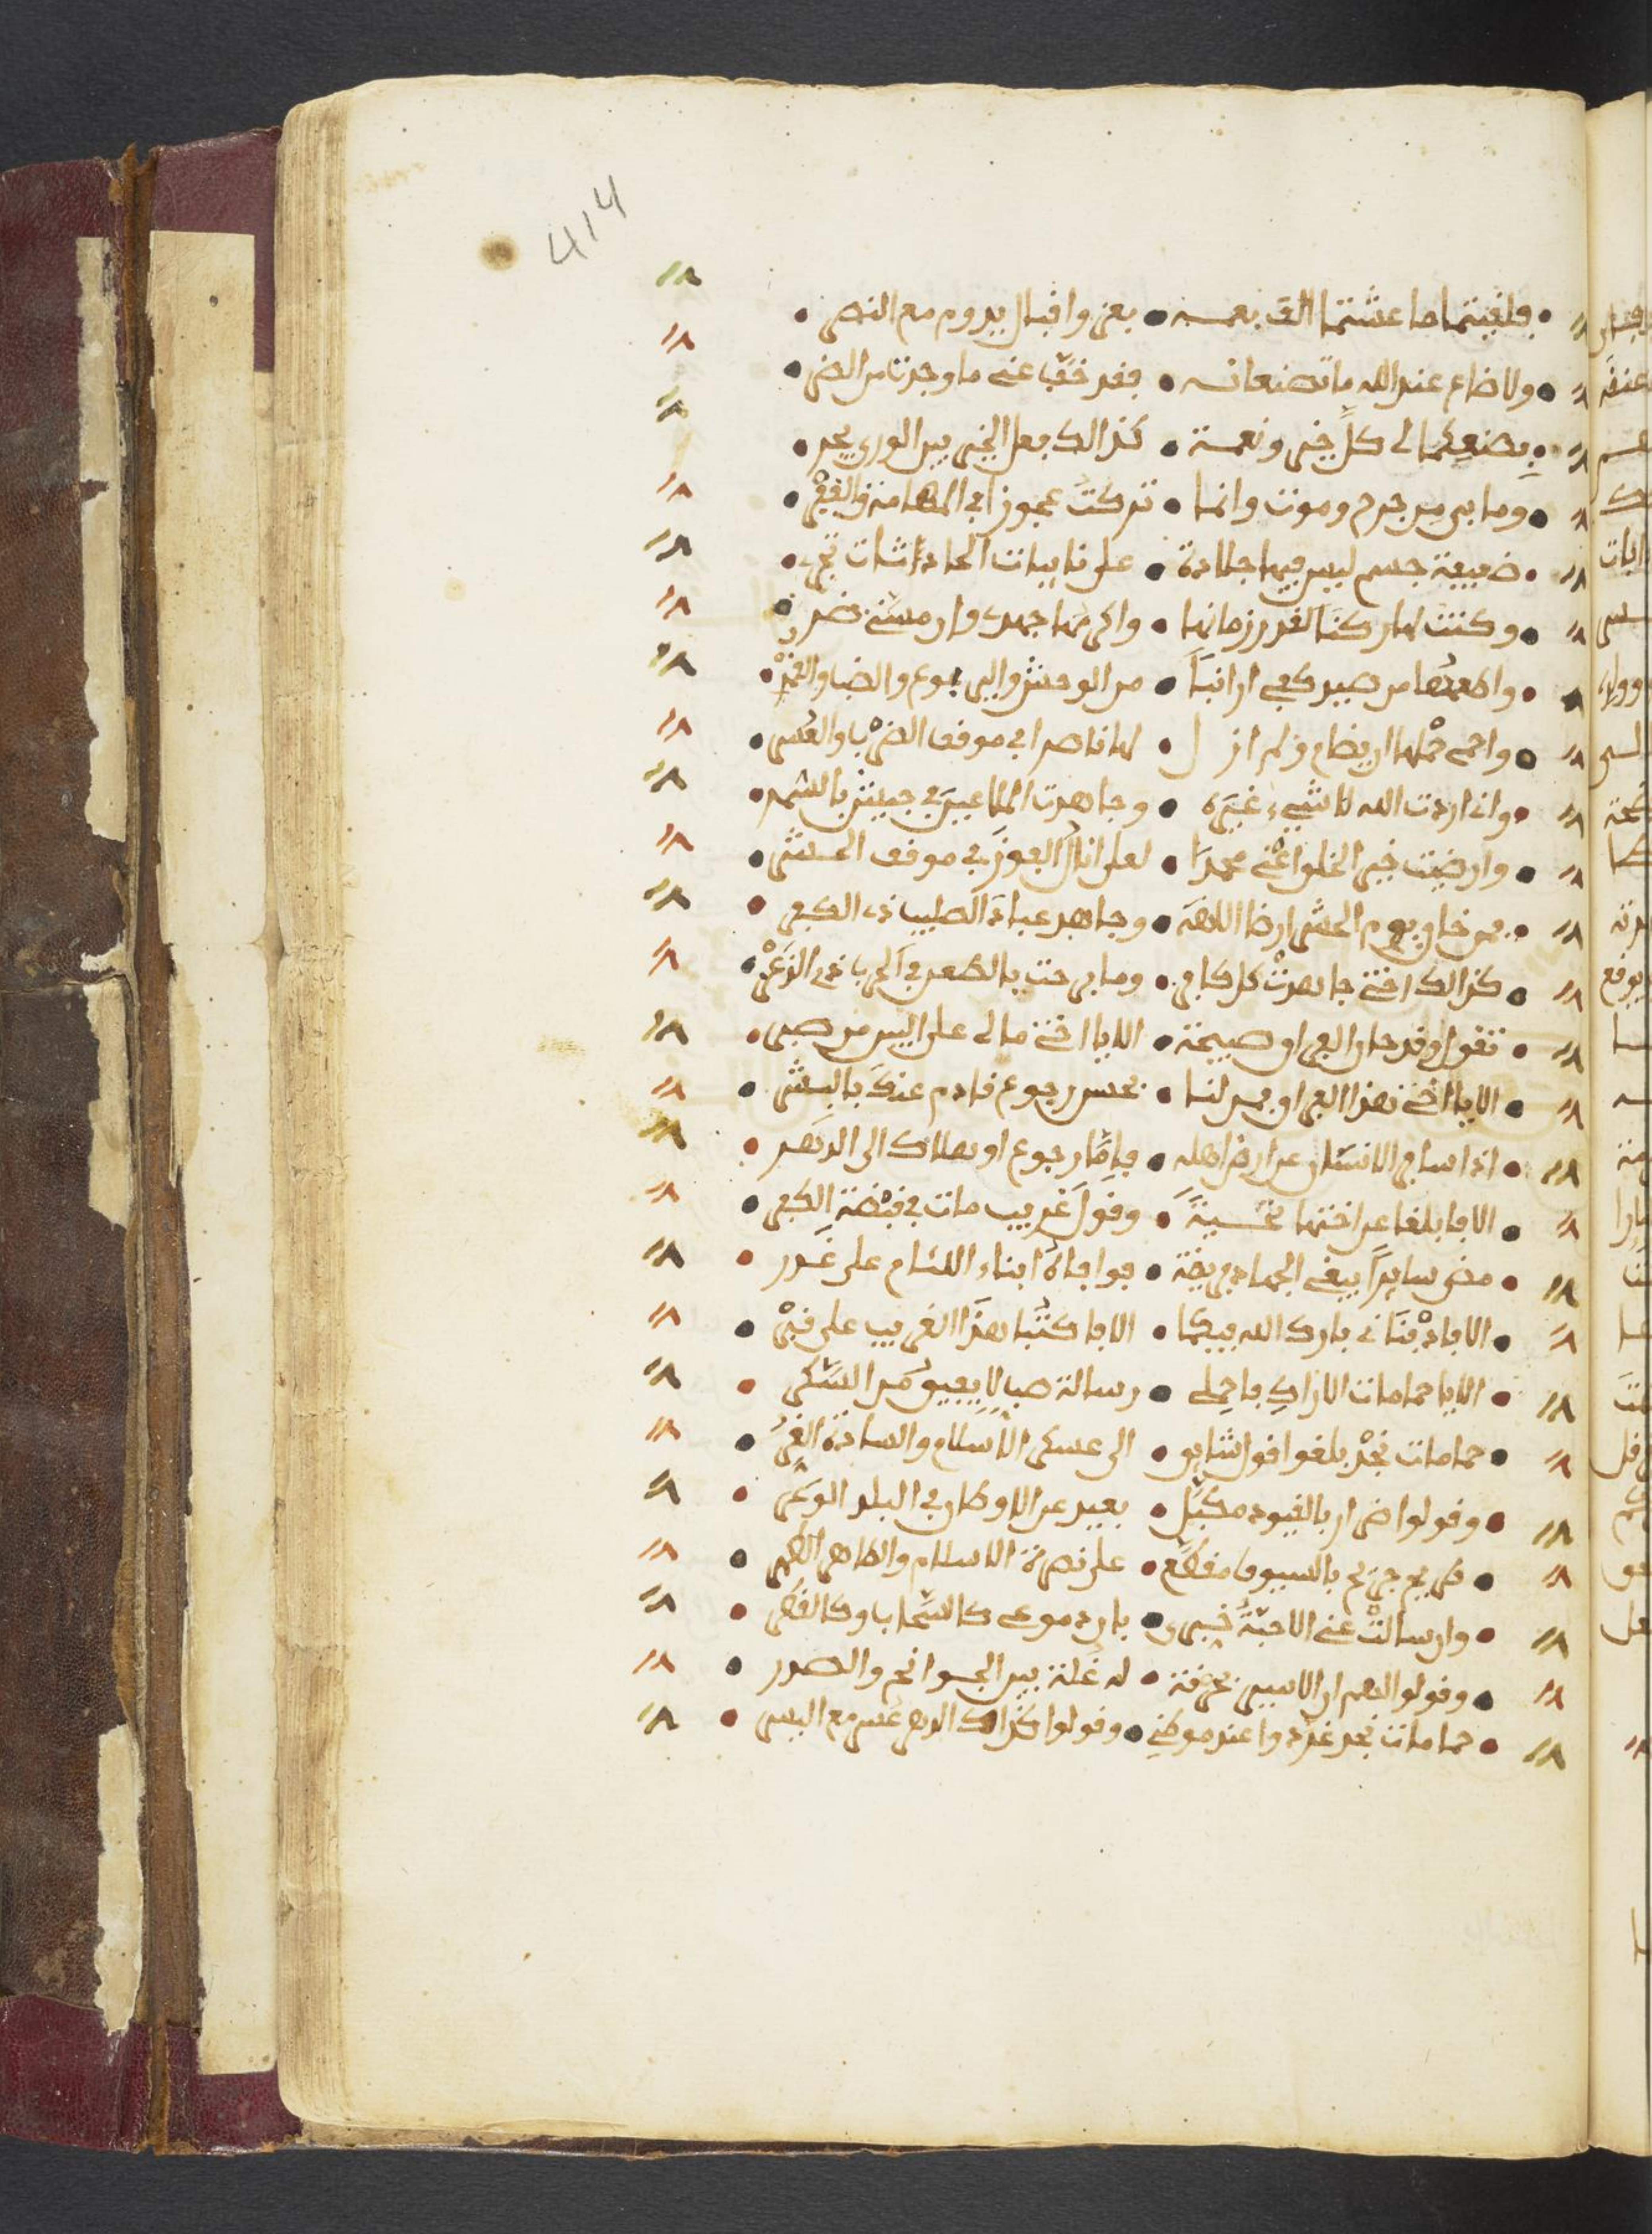 414
فلقيتما ما عشتما الف نعمة • بعز واقبال يدوم مع النصر
ولا ضاع عند الله ما تصنعانه • فقد خف عني ما وجدت من الضر
بصنعكما لي كل خير ونعمة • كذالك فعل الخير بين الورى يجر
وما بي من جرح وموت وانما • تركت عجوزا في المهامه والقفر
ضعيفة جسم ليس فيها جلادة • على نايبات الحادثات تجر
وكنت لها ركنا لقدر زمانها • واكرمها جهدي وان مسني ضر
واطعمتها من صيد كفي ارانبا • من الوحش واليربوع والضب
واحمي حماها ان يضام ولم ازل • لها ناصرا في موقف الضرب والعسر
واني اردت الله لا شيء غيره • وجاهدت الملاعين في جيش بالسمر
وارضيت خير الخلق اعني محمدا • لعلي انال الفوز في موقف الحشر
فمن خاف يوم الحشر ارضا اللهه • وجاهد عباد الصليب ذي الكفر
كذالك اختي جاهدت كل كافر • وما برحت بالطعن في الحرب
تقول وقد حان الفراق صبيحة • الا يا اخي مالي على البين من صبر
الا يا اخي هذا الفراق فمن لنا • بحسن رجوع قادم عندك بالبشر
اذا سافر الانسان عن ارض اهله • فاما رجوع او هلاك الى الدهر
الا فابلغا عن اختها تحية • وقول غريب مات في قبضة الكفر
مضى سايرا يبغي الجهاد فريضة • فوافاه ابناء اللئام على غدر
الا فادفناني بارك الله فيكما • الا فاكتبا هذا الغريب على قبر
الا يا حمامات الاراك فاحملي • رسالة صب لا يفيق من السكر
حمامات نجد بلغوا قول شايق • الى عسكر الاسلام والسادة الغر
وقولوا ضرار بالقيود مكبل • بعيد عن الاوطان في البلد الوعر
طريح جريح بالسيوف مقطع • على نصرة الاسلام والطاهر الطهر
وان سالت عني الاحبة خبري • بان دموعي كالسحاب وكالقطر
وقولوا لهم ان الاسير بحرقة • له غلة بين الجوانح والصدر
حمامات نجد غردوا عند موطني • وقولوا كذاك الدهر عسر مع اليسر